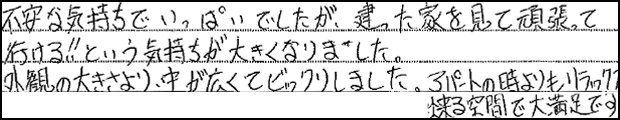 不安な気持ちでいっぱいでしたが、建った家を見て頑張って
行ける!!という気持ちが大きくなりました。
外観の大きさより、中が広くてビックリしました。アパートの時よりもリラックス
出来る空間で大満足です